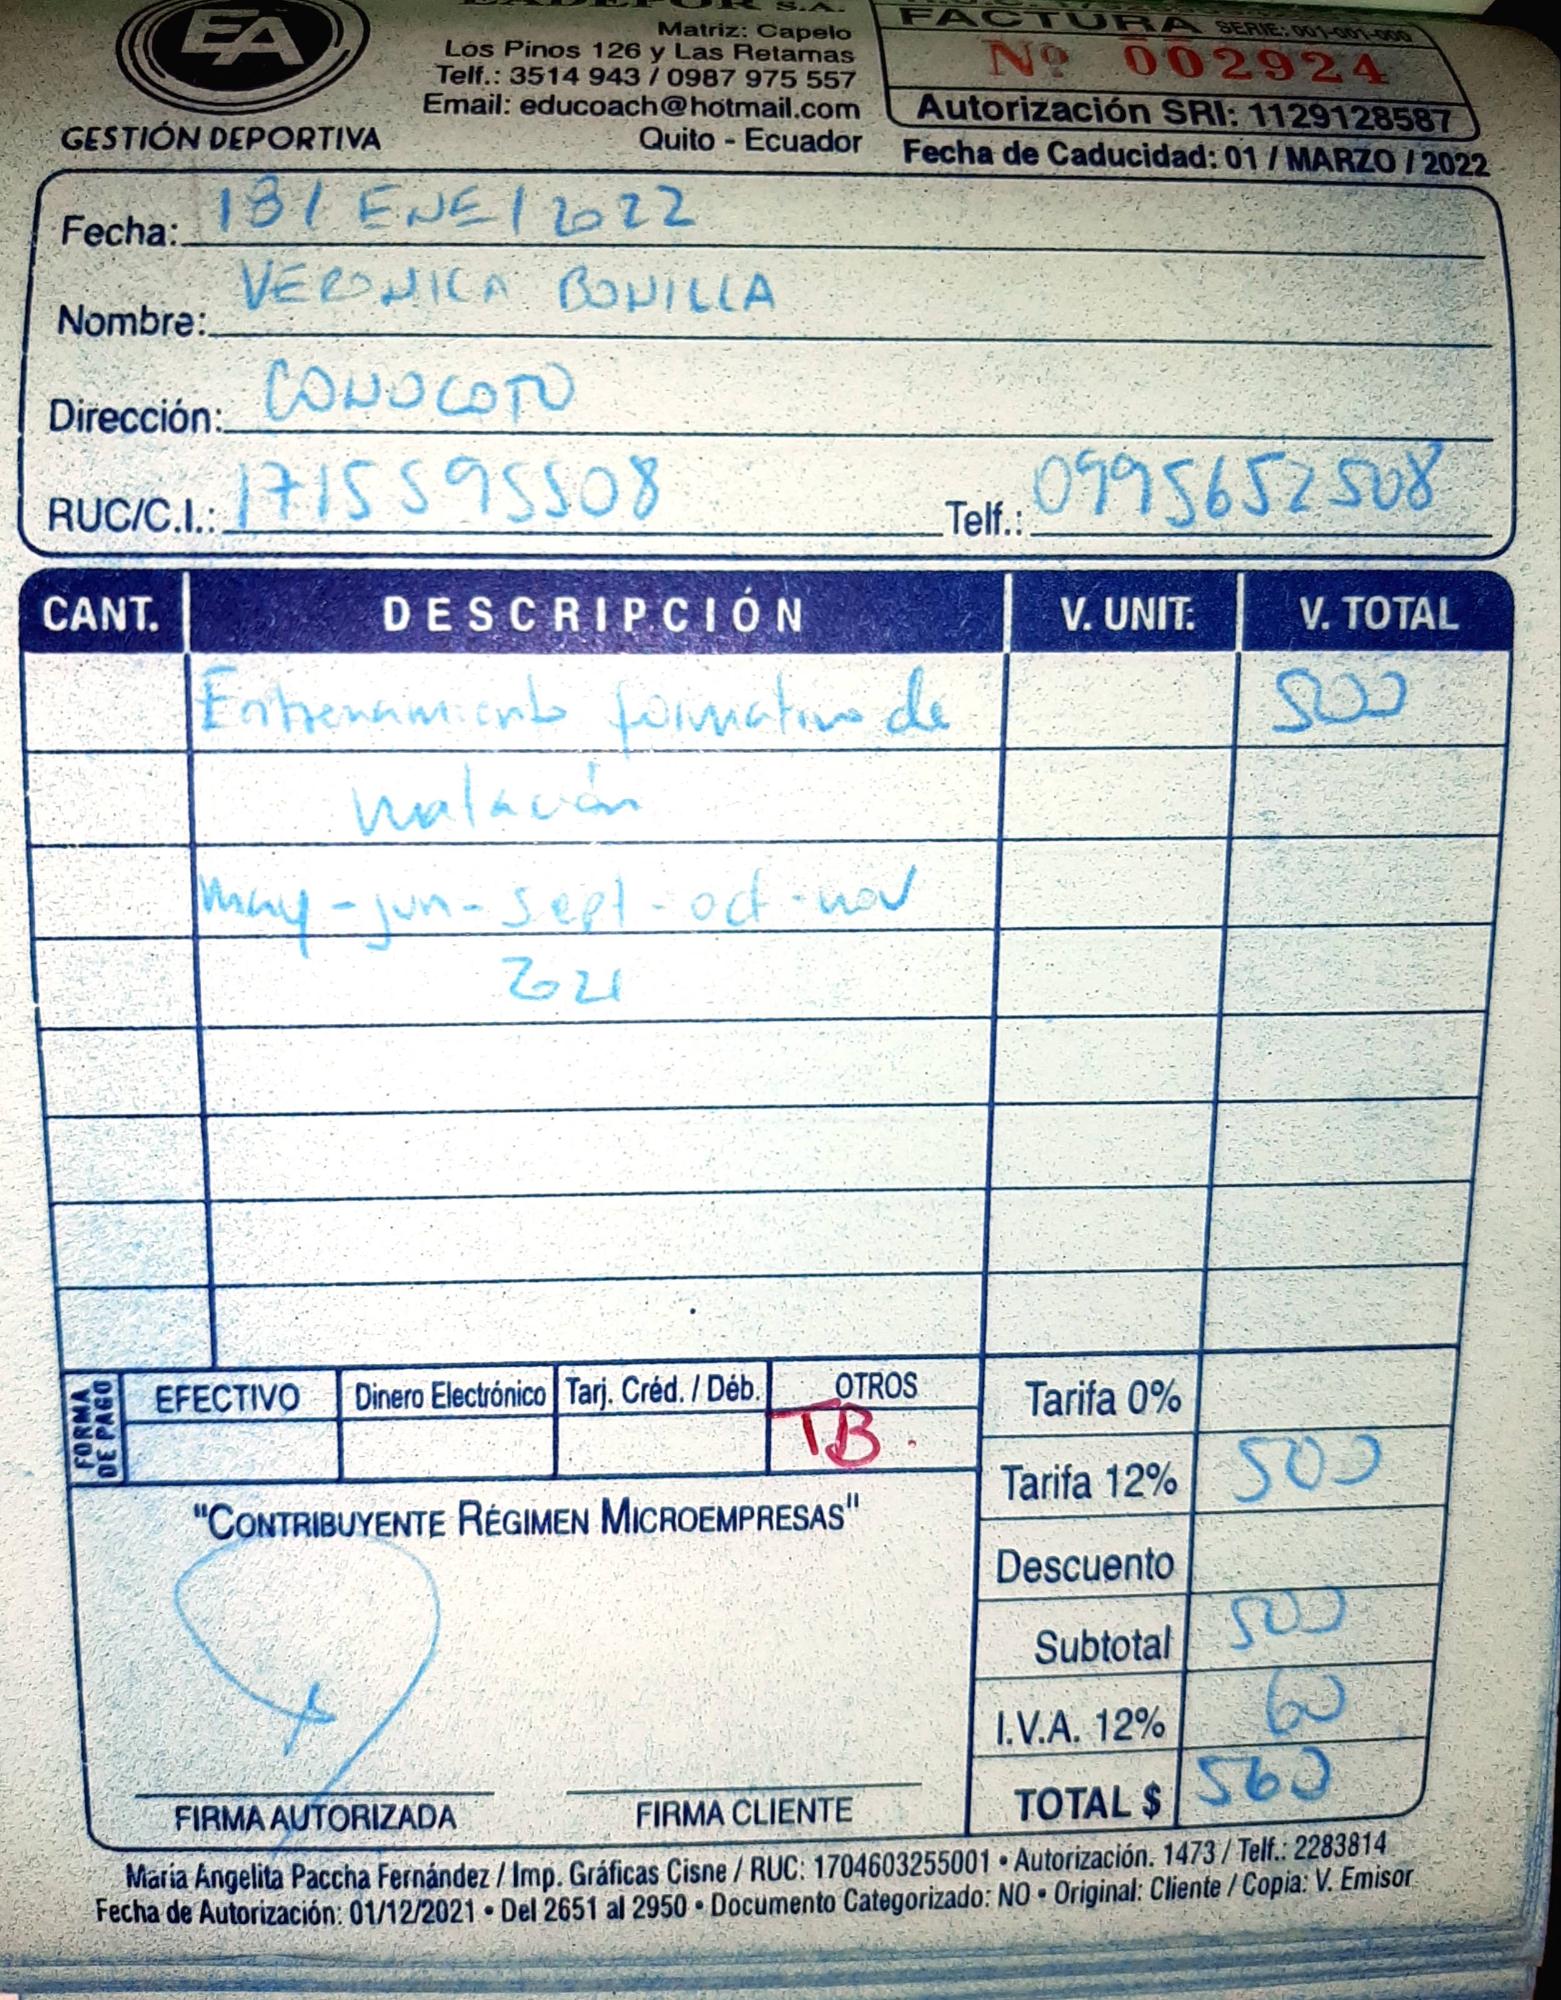 EA
GESTIÓN DEPORTIVA
EADEPOR S.A.
Matriz: Capelo
Los Pinos 126 y Las Retamas
Telf.: 3514 943 / 0987 975 557
Email: educoach@hotmail.com
Quito - Ecuador
FACTURA SERIE: 001-001-000
Nº 002924
Autorización SRI: 1129128587
Fecha de Caducidad: 01 / MARZO / 2022
Fecha: 18 / ENE / 2022
Nombre: VERONICA BONILLA
Dirección: CONOCOTO
RUC/C.I.: 1715595508 Telf.: 0995652508
CANT. DESCRIPCIÓN V. UNIT. V. TOTAL
Entrenamiento formativo de 500
natación
may - jun - sept - oct - nov
2021
FORMA DE PAGO
EFECTIVO Dinero Electrónico Tarj. Créd. / Déb. OTROS
TB.
Tarifa 0%
Tarifa 12% 500
Descuento
Subtotal 500
I.V.A. 12% 60
TOTAL $ 560
"CONTRIBUYENTE RÉGIMEN MICROEMPRESAS"
FIRMA AUTORIZADA FIRMA CLIENTE
María Angelita Paccha Fernández / Imp. Gráficas Cisne / RUC: 1704603255001 • Autorización. 1473 / Telf.: 2283814
Fecha de Autorización: 01/12/2021 • Del 2651 al 2950 • Documento Categorizado: NO • Original: Cliente / Copia: V. Emisor